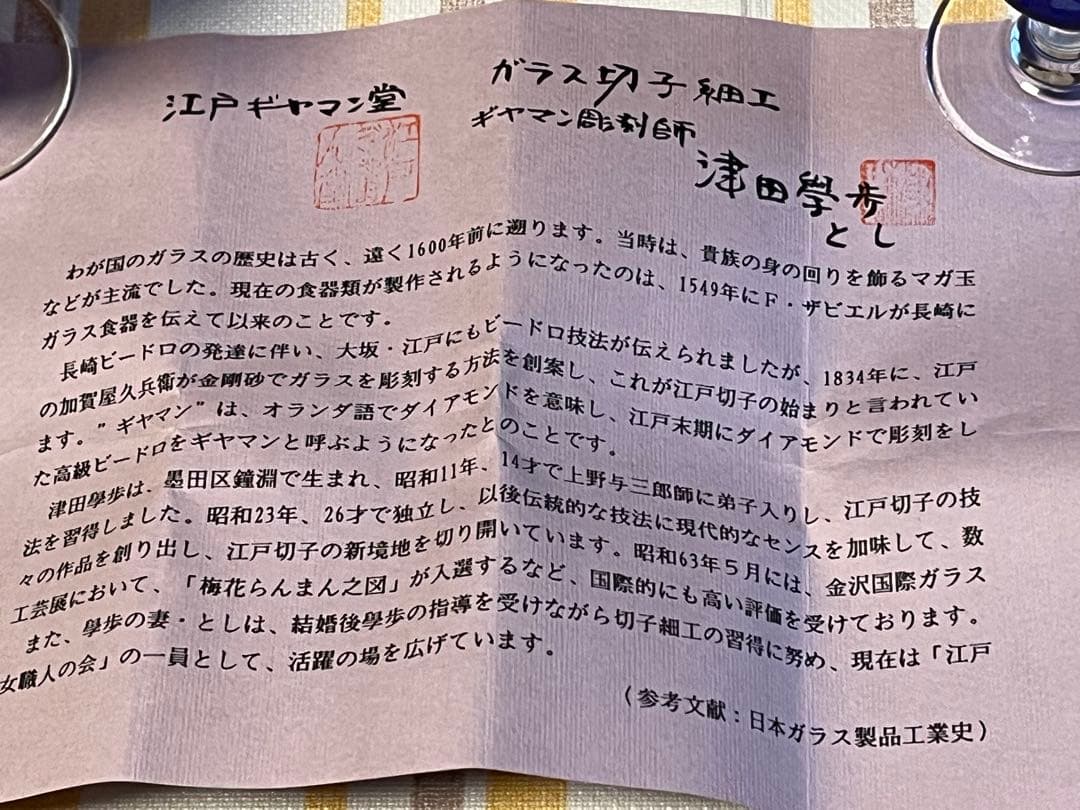 ガラス切子細工
江戸ギヤマン堂
ギヤマン彫刻師
津田學歩
とし
わが国のガラスの歴史は古く、遠く1600年前に遡ります。当時は、貴族の身の回りを飾るマガ玉
などが主流でした。現在の食器類が製作されるようになったのは、1549年にF・ザビエルが長崎に
ガラス食器を伝えて以来のことです。
長崎ビードロの発達に伴い、大坂・江戸にもビードロ技法が伝えられましたが、1834年に、江戸
の加賀屋久兵衛が金剛砂でガラスを彫刻する方法を創案し、これが江戸切子の始まりと言われてい
ます。"ギヤマン"は、オランダ語でダイアモンドを意味し、江戸末期にダイアモンドで彫刻をし
た高級ビードロをギヤマンと呼ぶようになったとのことです。
津田學歩は、墨田区鐘淵で生まれ、昭和11年、14才で上野与三郎師に弟子入りし、江戸切子の技
法を習得しました。昭和23年、26才で独立し、以後伝統的な技法に現代的なセンスを加味して、数
々の作品を創り出し、江戸切子の新境地を切り開いています。昭和63年5月には、金沢国際ガラス
工芸展において、「梅花らんまん之図」が入選するなど、国際的にも高い評価を受けております。
また、學歩の妻・としは、結婚後學歩の指導を受けながら切子細工の習得に努め、現在は「江戸
女職人の会」の一員として、活躍の場を広げています。
(参考文献:日本ガラス製品工業史)